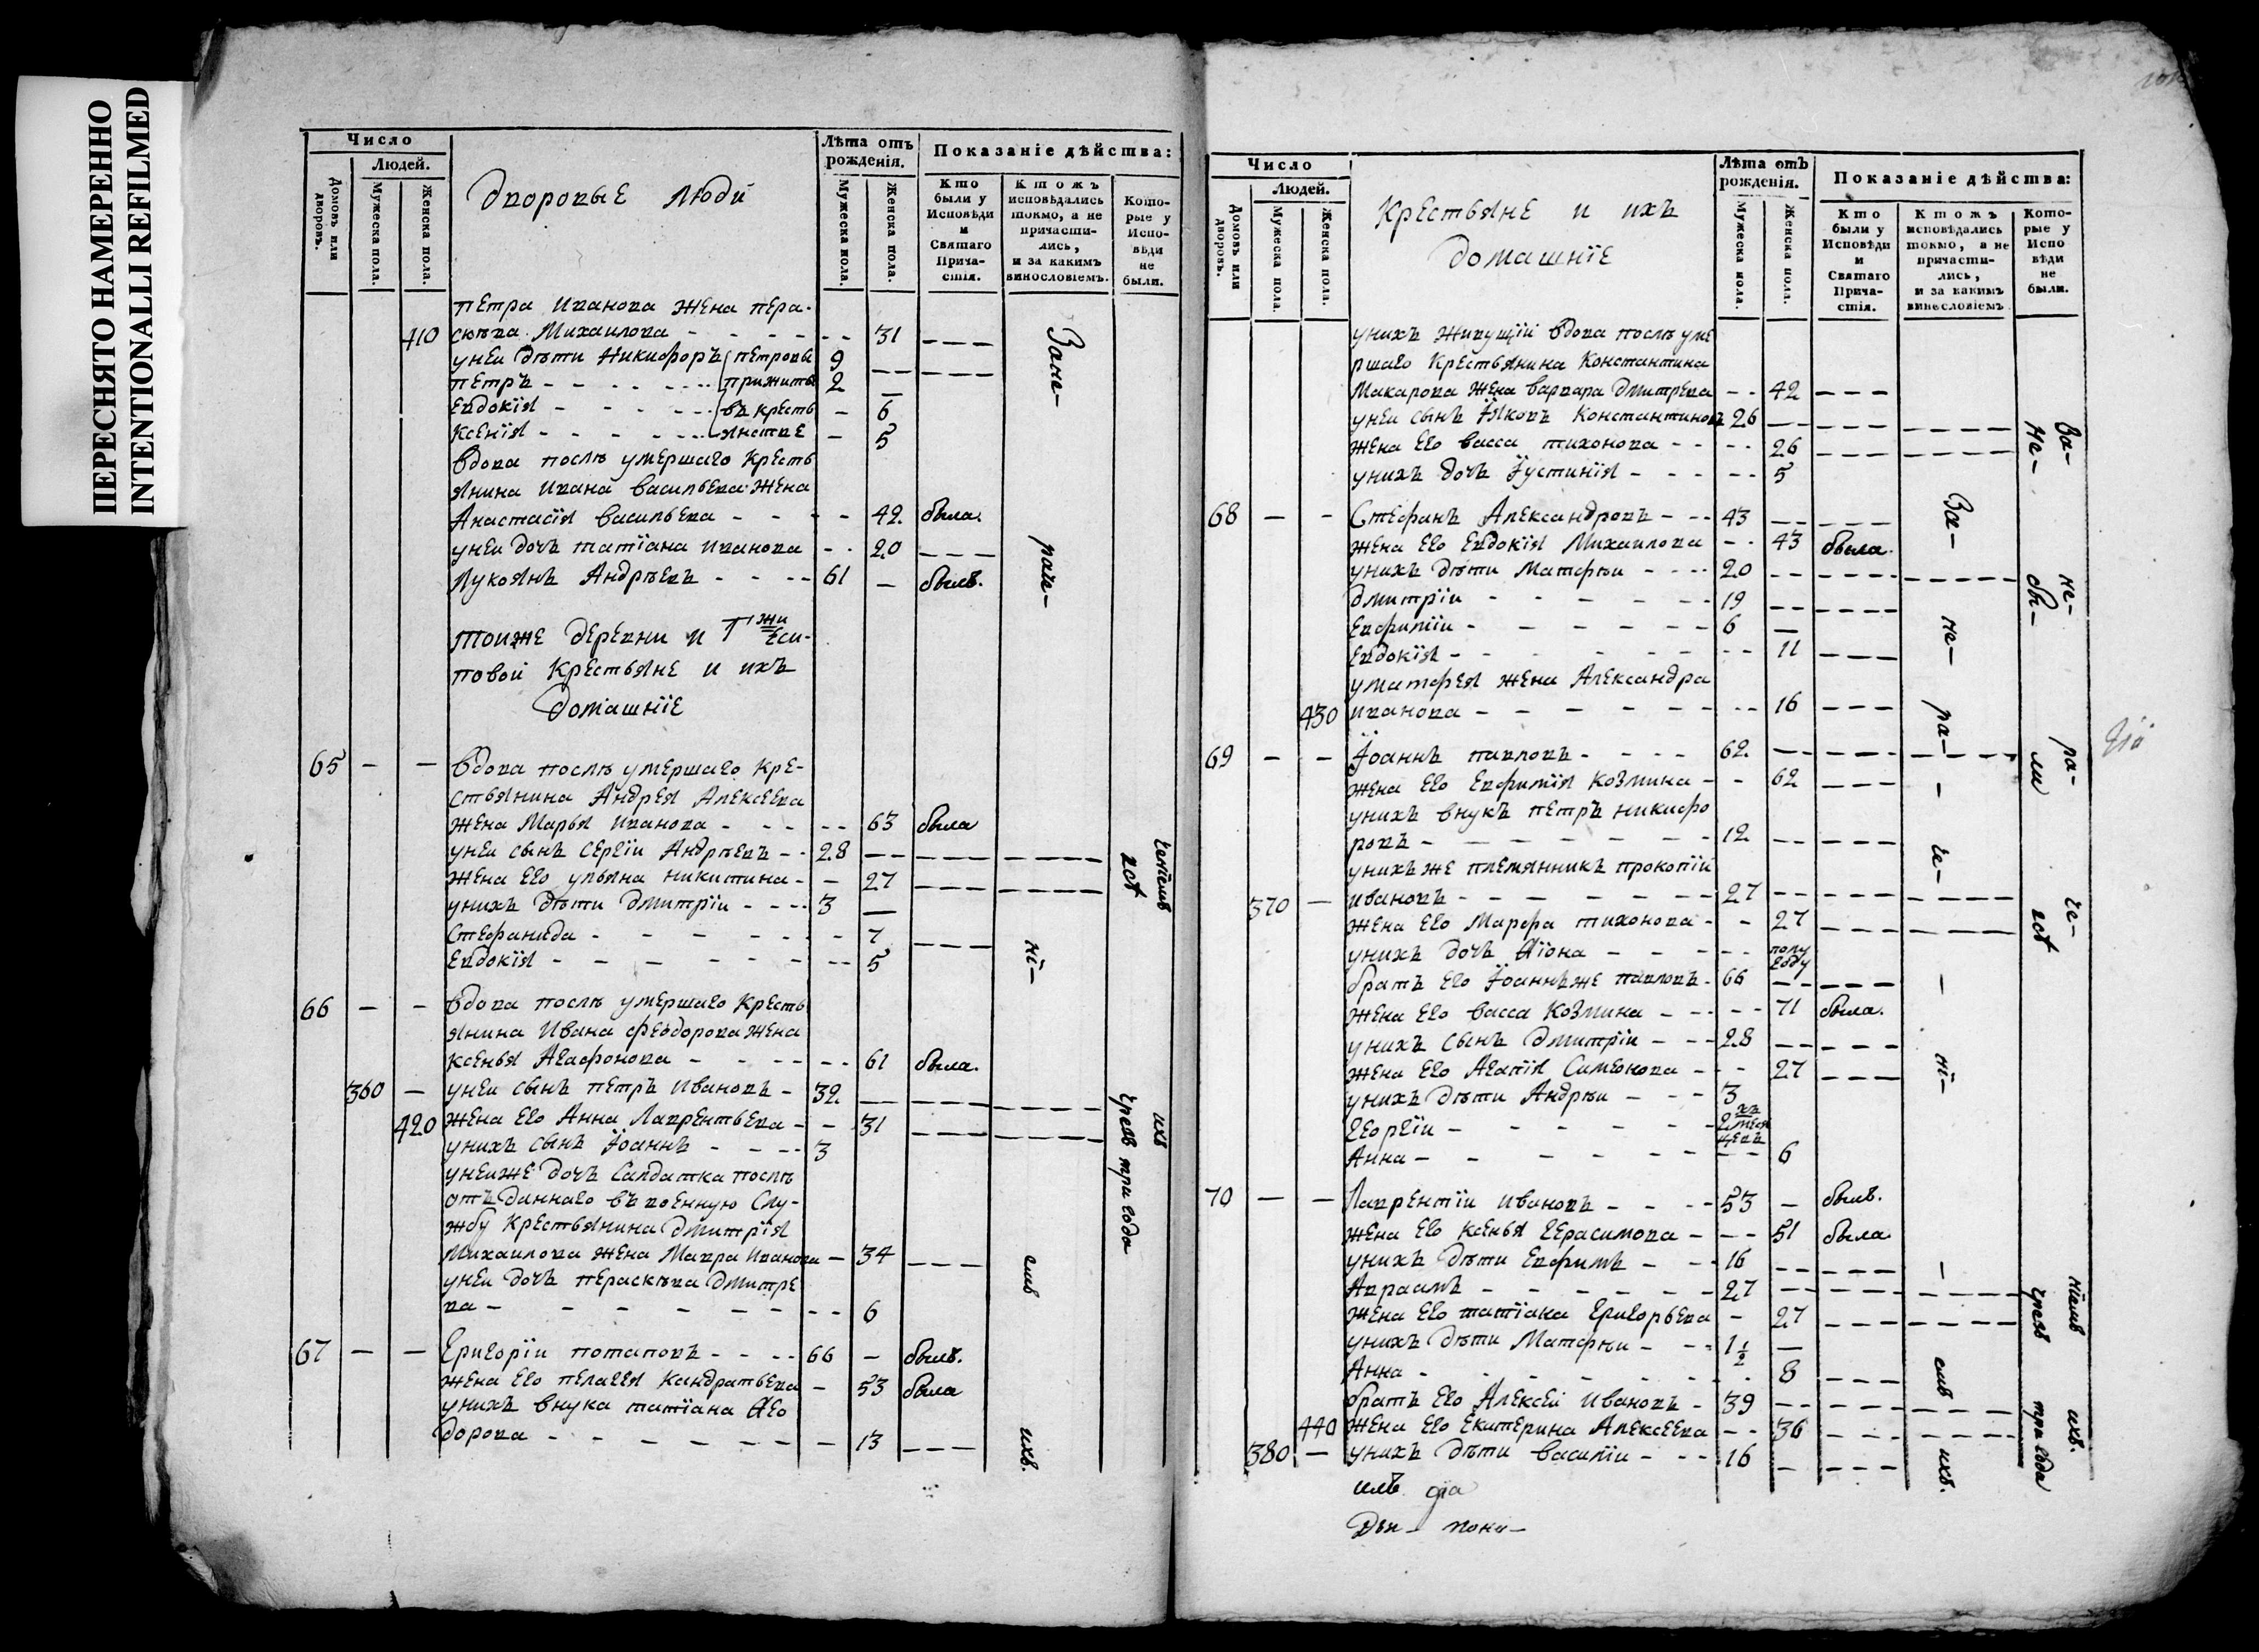 ПЕРЕСНЯТО НАМЕРЕННО
INTENTIONALLI REFILMED
Число
Людей.
Домовъ или дворовъ.
Мужеска пола.
Женска пола.
Дворовые люди
Лѣта отъ рожденія.
Мужеска пола.
Женска пола.
Показаніе дѣйства:
Кто были у Исповѣди и Святаго Причастія.
Ктожъ исповѣдались токмо, а не причастились, и за какимъ винословіемъ.
Которые у Исповѣди не были.
Петра Иванова жена Пера-
410 скѣва Михаилова - - - 31 - - -
унеи дѣти Никифоръ Петровы 9 - - -
Петръ - - - прижиты 2 —
Евдокїя - - - въ кресть — 6
Ксенїя - - - янствѣ — 5
Вдова послѣ умершаго кресть
янина Ивана Васильева жена
Анастасїя Васильева - - - 42 была.
унеи дочь Татїана Иванова - - 20 - - -
Лукоянъ Андрѣевъ - - - 61 — былъ.
Тоиже деревни и Гжи Еси-
повой крестьяне и ихъ
домашнїе
65 — — Вдова послѣ умершаго кре-
стьянина Андрея Алексеева
жена Марья Иванова - - - 63 была
унеи сынъ Сергїи Андрѣевъ - - 28 - - - - -
жена его Ульяна Никитина - — 27 - - - - -
унихъ дѣти Дмитрїи - - - 3 —
Стефанида - - - 7 - - -
Евдокїя - - - 5
66 — — Вдова послѣ умершаго кресть
янина Ивана Феодорова жена
Ксенья Агафонова - - - 61 была.
360 — унеи сынъ Петръ Ивановъ - 32 - - - - -
420 жена его Анна Лаврентьева - - 31 - - - - -
унихъ сынъ Їоаннъ - - - 3
унеиже дочь салдатка послѣ
отъданнаго въ военную слу-
жбу крестьянина Дмитрїя
Михаилова жена Мавра Иванова — 34 - - -
унеи дочь Пераскѣва Дмитре
ва - - - 6
67 — — Григорїи Потаповъ - - - 66 — былъ.
жена его Пелагея Кандратьева — 53 была
унихъ внука Татїана Фео
дорова - - - 13 - - -
Зане-
раче-
нї-
емъ
ихъ.
чрезъ три года
ихъ
Число
Людей.
Домовъ или дворовъ.
Мужеска пола.
Женска пола.
Крестьяне и ихъ
домашнїе
Лѣта отъ рожденія.
Мужеска пола.
Женска пола.
Показаніе дѣйства:
Кто были у Исповѣди и Святаго Причастія.
Ктожъ исповѣдались токмо, а не причастились, и за какимъ винесловіемъ
Которые у Исповѣди не были.
унихъ живущїи вдова послѣ уме
ршаго крестьянина Константина
Макарова жена Варвара Дмитрева - - 42 - - -
унеи сынъ Їяковъ Константиновъ 26 - - - - -
жена его Васса Тихонова - - - 26 - - - - -
унихъ дочь Їустинїя - - - 5
68 — - Стефанъ Александровъ - - 43 - - - -
жена его Евдокїя Михаилова - - 43 была.
унихъ дѣти Матфѣи - - - 20 - - - - -
Дмитрїи - - - 19 - - - -
Евфимїи - - - 6 —
Евдокїя - - - 11 - - -
уматфея жена Александра
430 Иванова - - - 16 - - -
69 — - Їоаннъ Павловъ - - - 62 - - - - -
жена его Евфимїя Козмина - - 62 - - -
унихъ внукъ Петръ Никифо
ровъ - - - 12 - - - -
унихъже племянникъ Прокопїи
370 — Ивановъ - - - 27 - - - - -
жена его Марфа Тихонова - - 27 - - - - -
унихъ дочь - - - полу году
братъ его Їоаннъже Павловъ - 66 - - - -
жена его Васса Козмина - - - 71 была.
унихъ сынъ Дмитрїи - - - 28 - - - -
жена его Агапїя Симеонова - - - 27 - - -
унихъ дѣти Андрѣи - - - 3
Георгїи - - - 2хъ месяцевъ
Анна - - - 6
70 — — Лаврентїи Ивановъ - - - 53 — былъ.
жена его Ксенья Герасимова - - - 51 была.
унихъ дѣти Евфимъ - - - 16 - - - -
Авраамъ - - - 27 - - - - -
жена его Татїана Григорьева - 27 - - - - -
унихъ дѣти Матфѣи - - - 1½ —
Анна - - - 8 - - -
братъ его Алексѣй Ивановъ - 39 - - - - -
440 жена его Екатерина Алексеева - - 36 - - - - -
380 — унихъ дѣти Василїи - - - 16 — - - -
За-
не-
ра-
че-
нї-
емъ
ихъ.
Не-
бы-
ли
чрезъ три года
За-
не-
ра-
че-
нїемъ
ихъ.